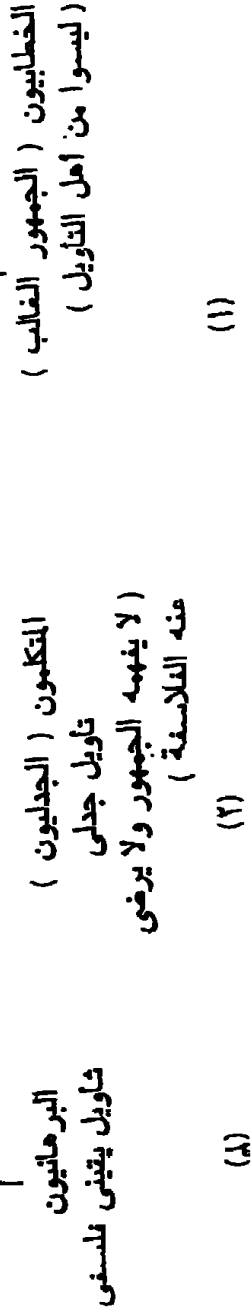 الخطابيون ( الجمهور الغالب )
( ليسوا من أهل التأويل )
(١)
المتكلمون ( الجدليون )
تأويل جدلى
( لا يفهمه الجمهور ولا يرضى
عنه الفلاسفة )
(٢)
البرهانيون
تأويل يقينى فلسفى